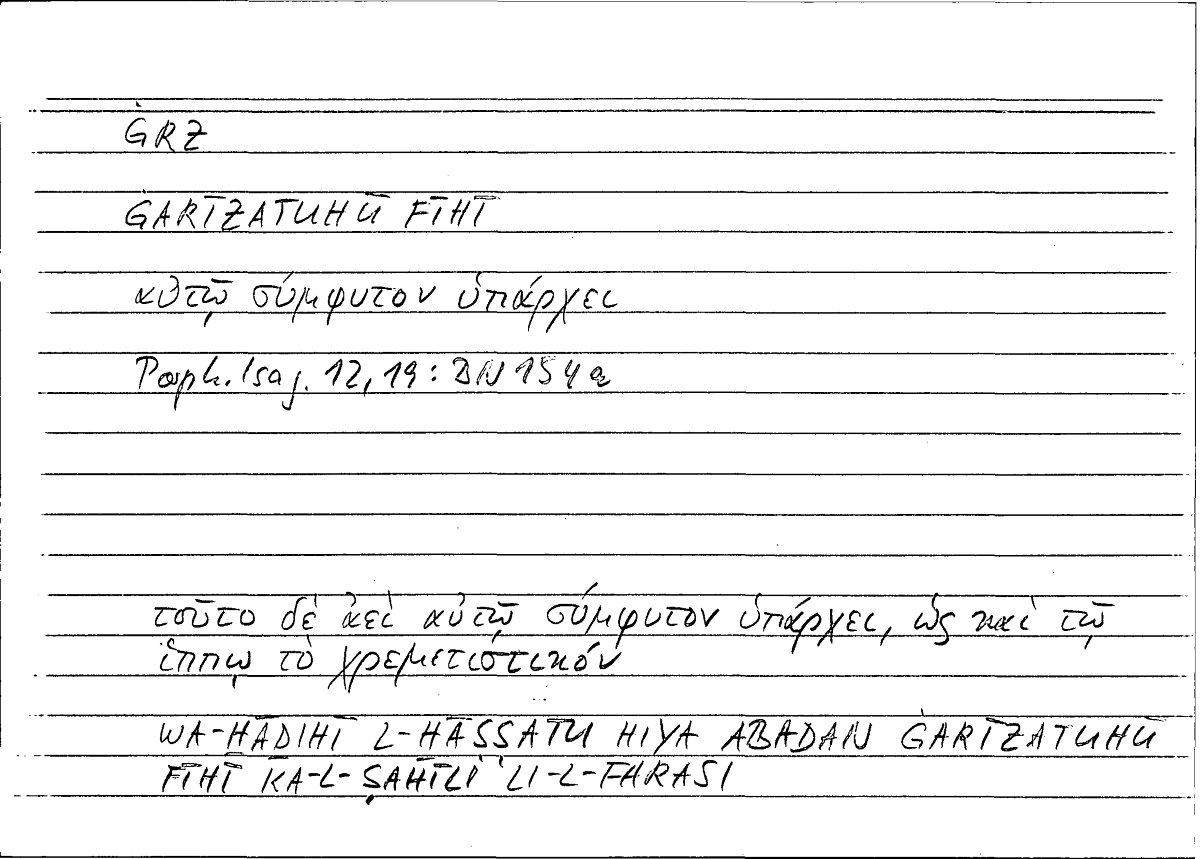 ĠRZ
ĠARĪZATUHŪ FĪHĪ
αὐτῷ σύμφυτον ὑπάρχει
Porph. Isag. 12, 19: DN 154a
τοῦτο δὲ ἀεὶ αὐτῷ σύμφυτον ὑπάρχει, ὡς καὶ τῷ
ἵππῳ τὸ χρεμετιστικόν
WA-HĀDIHĪ L-HĀSSATU HIYA ABADAN ĠARĪZATUHŪ
FĪHĪ KA-L-ṢAHĪLI LI-L-FARASI